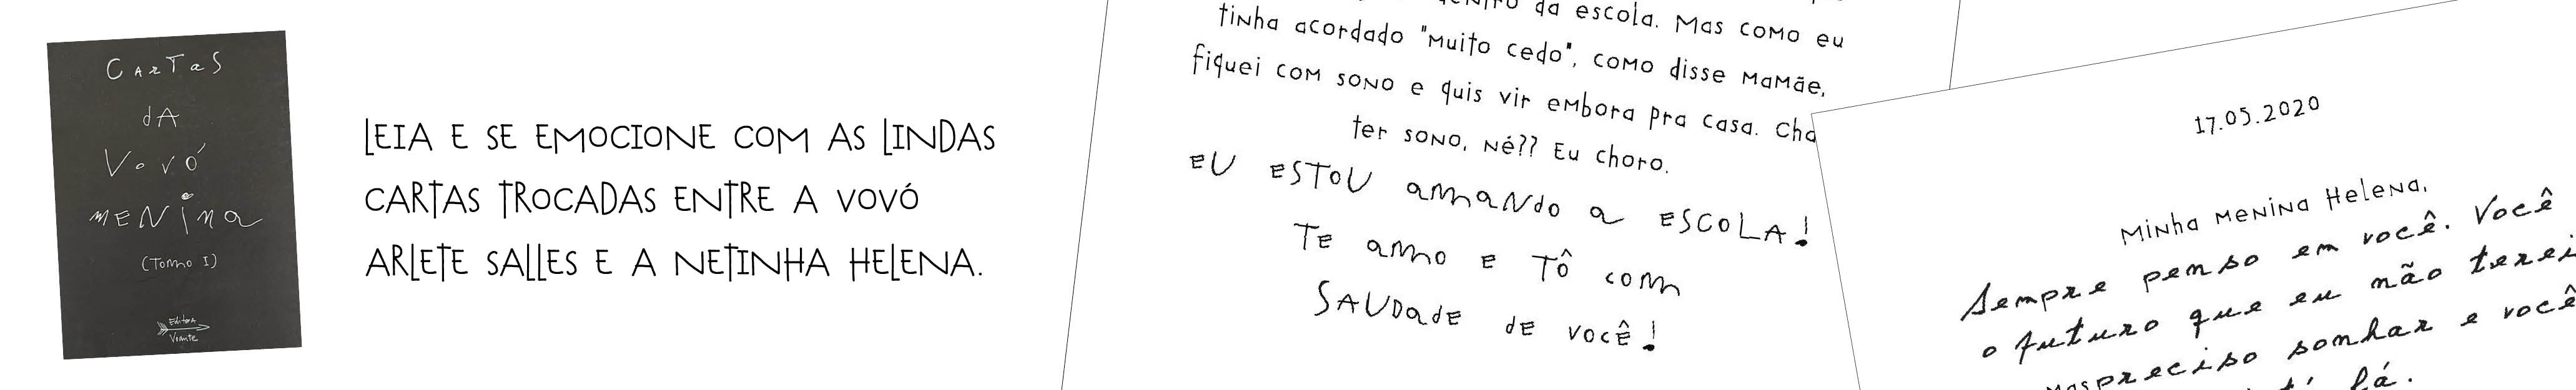 CARTAS
dA
Vovó
MENiNa
(Tomo I)
Editora
Voante
LEIA E SE EMOCIONE COM AS LINDAS
CARTAS TROCADAS ENTRE A VOVÓ
ARLETE SALLES E A NETINHA HELENA.
da escola. Mas como eu
tinha acordado "muito cedo", como disse Mamãe,
fiquei com sono e quis vir embora pra casa.
ter sono, né?? Eu choro.
EU ESTOU amando a ESCOLA!
TE amo E Tô com
SAUDadE dE você!
17.05.2020
Minha Menina Helena,
Sempre penso em você. Você
o futuro que eu não terei
preciso sonhar e você
lá.